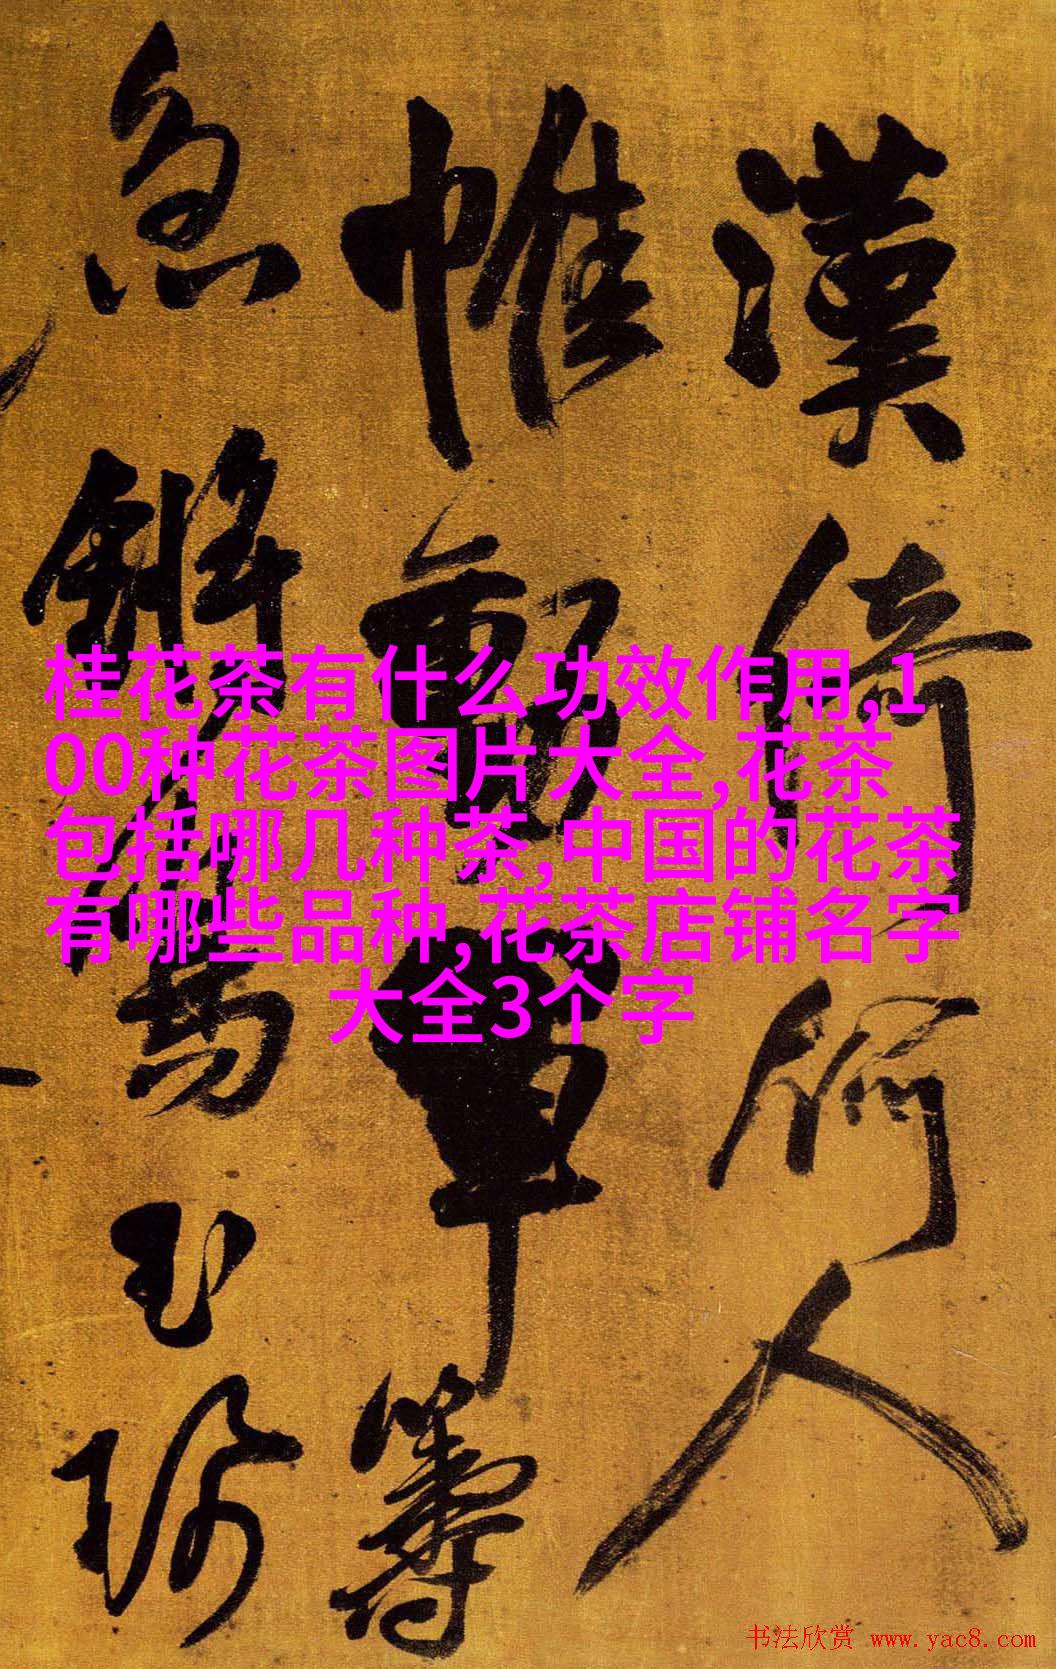 漢
倚
何
人
帷
軍
籌
急
玉
桂花茶有什么功效作用,1
00种花茶图片大全,花茶
包括哪几种茶,中国的花茶
有哪些品种,花茶店铺名字
大全3个字
书法欣赏 www.yac8.com